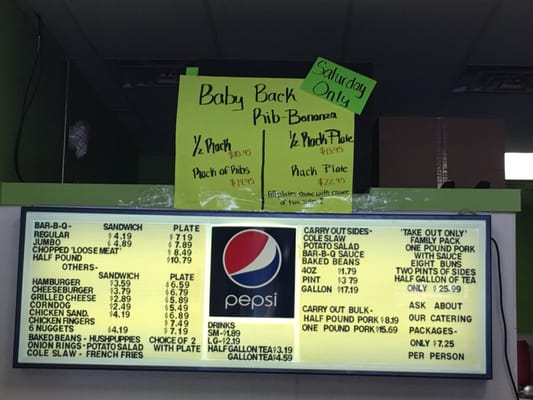 Baby Back
Rib-Bonanza
Saturday
Only
1/2 Rack
$10.95
Rack of Ribs
$19.95
1/2 Rack Plate
$13.95
Rack Plate
$22.95
All plates come with choice
of two sides!
BAR-B-Q - SANDWICH PLATE
REGULAR $4.19 $7.19
JUMBO $4.89 $7.89
CHOPPED 'LOOSE MEAT' $8.49
HALF POUND $10.79
OTHERS-
SANDWICH PLATE
HAMBURGER $3.59 $6.59
CHEESEBURGER $3.79 $6.79
GRILLED CHEESE $2.89 $5.89
CORNDOG $2.49 $5.49
CHICKEN SAND. $4.19 $6.89
CHICKEN FINGERS $7.49
6 NUGGETS $4.19 $7.19
BAKED BEANS - HUSHPUPPIES CHOICE OF 2
ONION RINGS - POTATO SALAD WITH PLATE
COLE SLAW - FRENCH FRIES
pepsi
DRINKS
SM-$1.89
LG-$2.19
HALF GALLON TEA$3.19
GALLON TEA$4.59
CARRY OUT SIDES-
COLE SLAW
POTATO SALAD
BAR-B-Q SAUCE
BAKED BEANS
4OZ $1.79
PINT $3.79
GALLON $17.19
CARRY OUT BULK-
HALF POUND PORK $8.19
ONE POUND PORK $15.69
'TAKE OUT ONLY'
FAMILY PACK
ONE POUND PORK
WITH SAUCE
EIGHT BUNS
TWO PINTS OF SIDES
HALF GALLON OF TEA
ONLY $ 25.99
ASK ABOUT
OUR CATERING
PACKAGES-
ONLY $7.25
PER PERSON